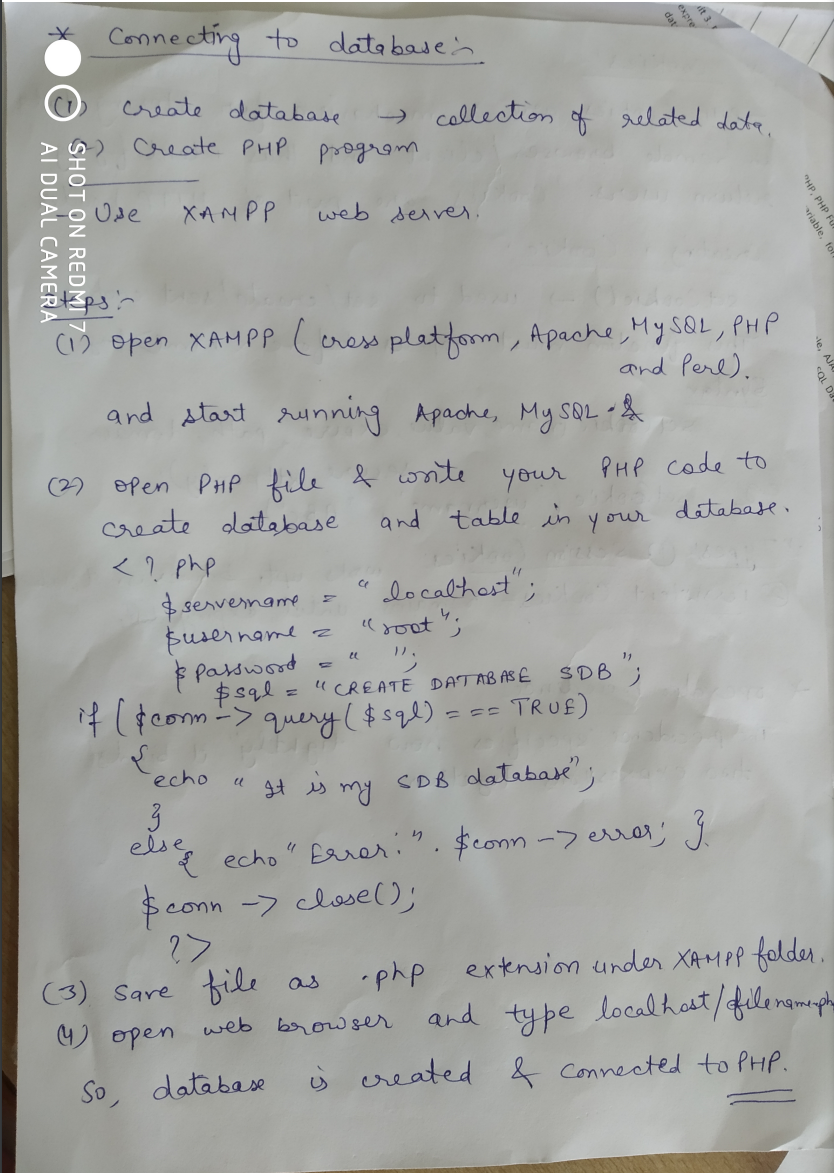 * Connecting to database:-
(1) Create database → collection of related data.
(2) Create PHP program
- Use XAMPP web server.
Steps:-
(1) open XAMPP (cross platform, Apache, MySQL, PHP
and Perl).
and start running Apache, MySQL. &
(2) open PHP file & write your PHP code to
create database and table in your database.
<? php
$servername = "localhost";
$username = "root";
$password = " ";
$sql = "CREATE DATABASE SDB";
if ($conn -> query($sql) === TRUE)
{
echo "It is my SDB database";
}
else { echo "Error:" . $conn -> error; }
$conn -> close();
?>
(3) Save file as .php extension under XAMPP folder.
(4) open web browser and type localhost/filename.ph
So, database is created & connected to PHP.
SHOT ON REDMI 7
AI DUAL CAMERA